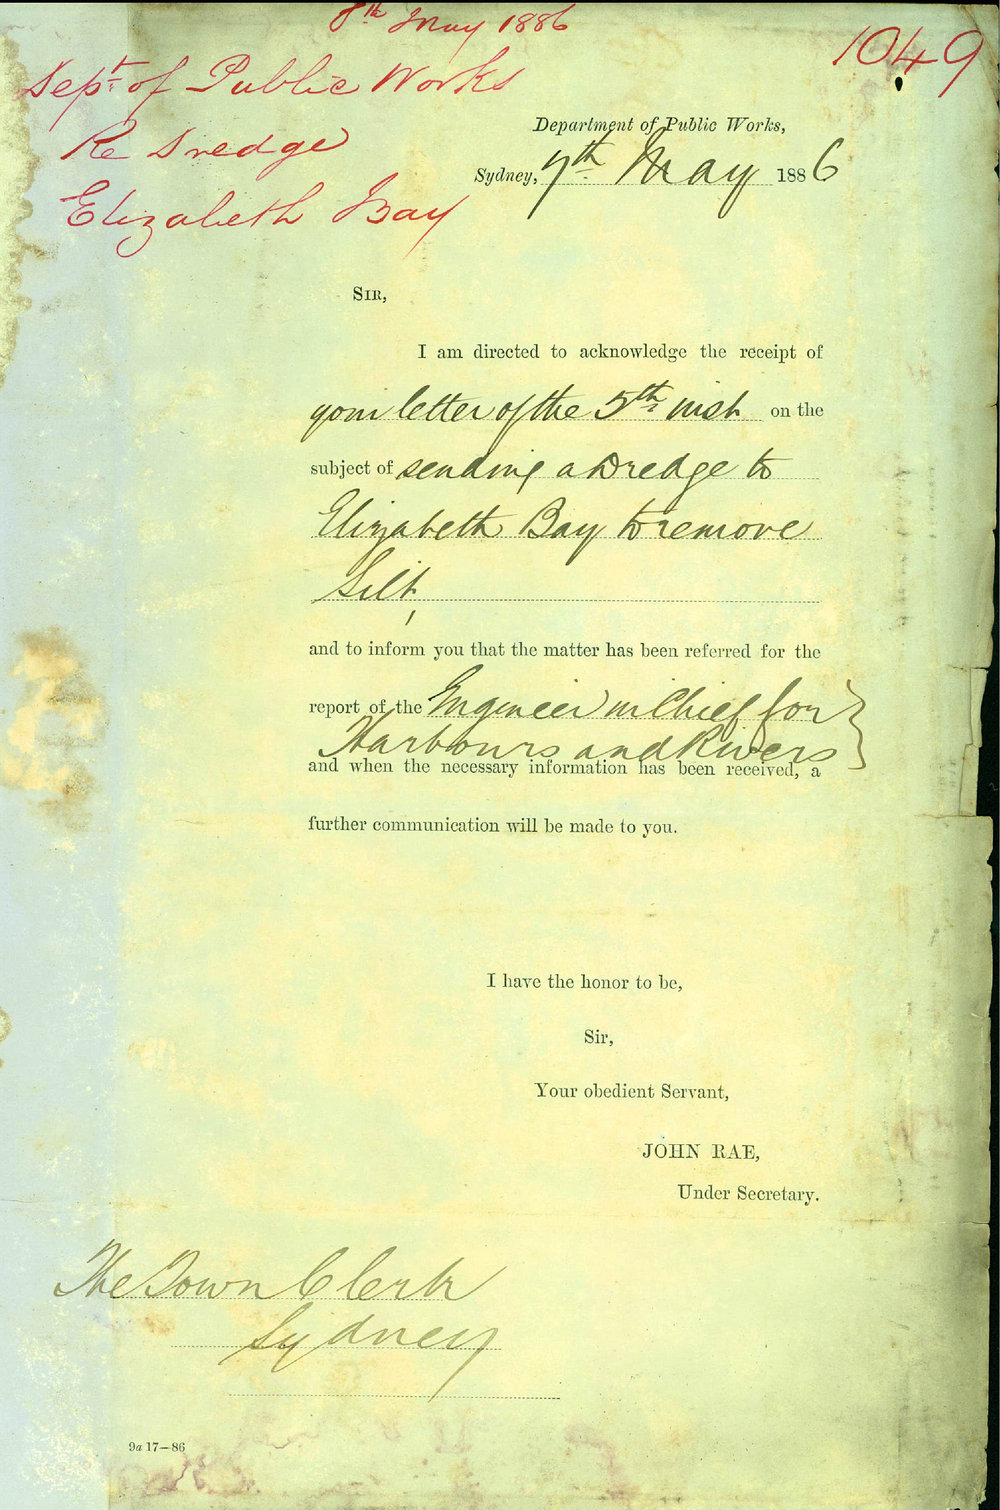 8th May 1886
1049
Dept of Public Works
Re Dredge
Elizabeth Bay
Department of Public Works,
Sydney, 7th May 1886
SIR,
I am directed to acknowledge the receipt of
your letter of the 5th inst on the
subject of sending a Dredge to
Elizabeth Bay to remove
Silt,
and to inform you that the matter has been referred for the
report of the Engineer in Chief for
Harbours and Rivers
and when the necessary information has been received, a
further communication will be made to you.
I have the honor to be,
Sir,
Your obedient Servant,
JOHN RAE,
Under Secretary.
The Town Clerk
Sydney
9a 17—86